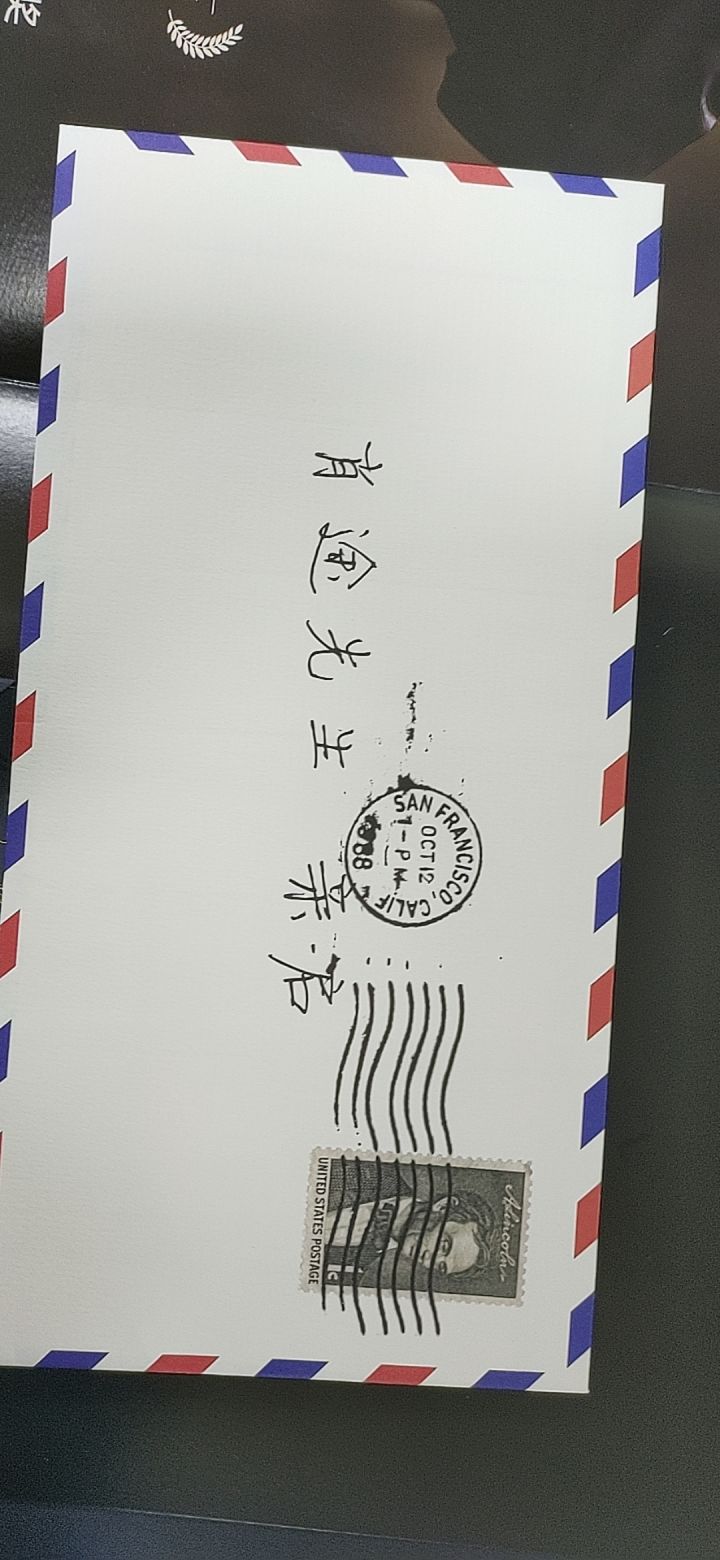 肖途先生 亲启
SAN FRANCISCO, CALIF
OCT 12
1-PM
A. Lincoln
UNITED STATES POSTAGE